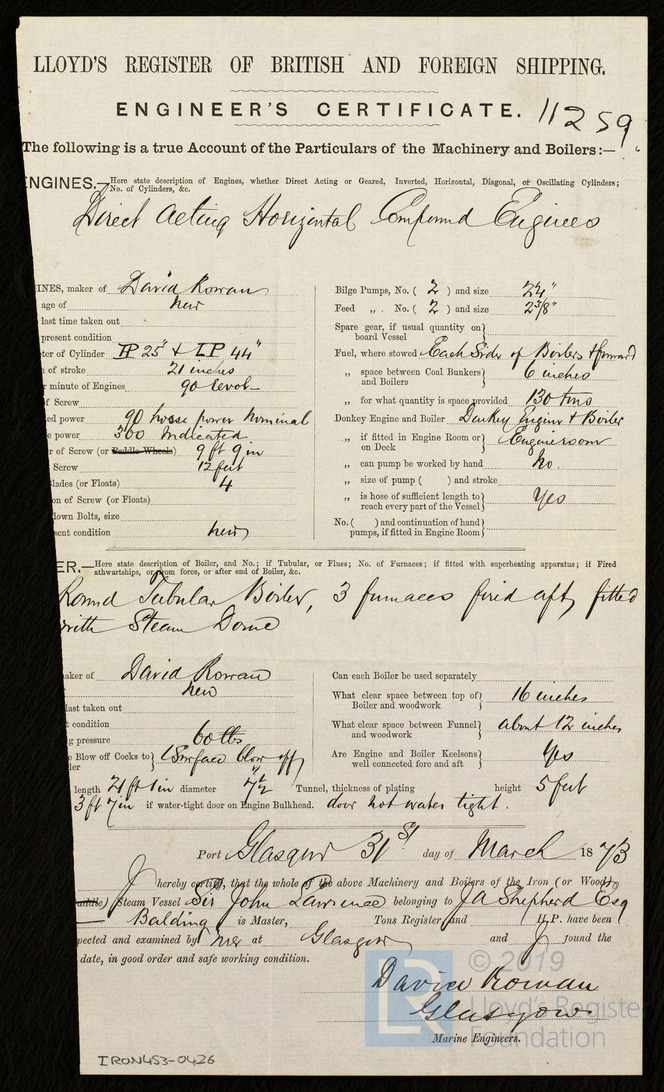 LLOYD'S REGISTER OF BRITISH AND FOREIGN SHIPPING.
ENGINEER'S CERTIFICATE. 11259
The following is a true Account of the Particulars of the Machinery and Boilers:—
NGINES.— Here state description of Engines, whether Direct Acting or Geared, Inverted, Horizontal, Diagonal, or Oscillating Cylinders;
No. of Cylinders, &c.
Direct Acting Horizontal Compound Engines
INES, maker of David Rowan
age of new
last time taken out
present condition
ter of Cylinder HP 25" & LP 44"
of stroke 21 inches
r minute of Engines 90 revol
of Screw
ed power 90 horse power nominal
e power 360 Indicated
er of Screw (or Paddle Wheels) 9 ft 9 in
Screw 12 feet
Blades (or Floats) 4
on of Screw (or Floats)
down Bolts, size
sent condition new
Bilge Pumps, No. ( 2 ) and size 2¼"
Feed „ No. ( 2 ) and size 2⅜"
Spare gear, if usual quantity on board Vessel
Fuel, where stowed Each Side of Boilers & forward
„ space between Coal Bunkers and Boilers 6 inches
„ for what quantity is space provided 130 tons
Donkey Engine and Boiler Donkey Engine & Boiler
„ if fitted in Engine Room or on Deck Engineroom
„ can pump be worked by hand No.
„ size of pump ( ) and stroke
„ is hose of sufficient length to reach every part of the Vessel Yes
No. ( ) and continuation of hand pumps, if fitted in Engine Room
ER.— Here state description of Boiler, and No.; if Tubular, or Flues; No. of Furnaces; if fitted with superheating apparatus; if Fired
athwartships, or from force, or after end of Boiler, &c.
Round Tubular Boiler, 3 furnaces fired aft, fitted
with Steam Dome
aker of David Rowan
new
last taken out
t condition
g pressure 60 lbs
e Blow off Cocks to ler 1 Surface blow off
Can each Boiler be used separately
What clear space between top of Boiler and woodwork 16 inches
What clear space between Funnel and woodwork about 12 inches
Are Engine and Boiler Keelsons well connected fore and aft Yes
length 21 ft 1 in diameter 7½" Tunnel, thickness of plating height 5 feet
3 ft 7 in if water-tight door on Engine Bulkhead. door not water tight.
Port Glasgow 31st day of March 1873
I hereby certify, that the whole of the above Machinery and Boilers of the Iron (or Wood)
addle) Steam Vessel Sir John Lawrence belonging to J A Shepherd Esq
Balding is Master, Tons Register and H.P. have been
pected and examined by me at Glasgow and I found the
date, in good order and safe working condition.
David Rowan
Glasgow
Marine Engineers.
© 2019
LR Lloyd's Register
Foundation
IRON453-0426